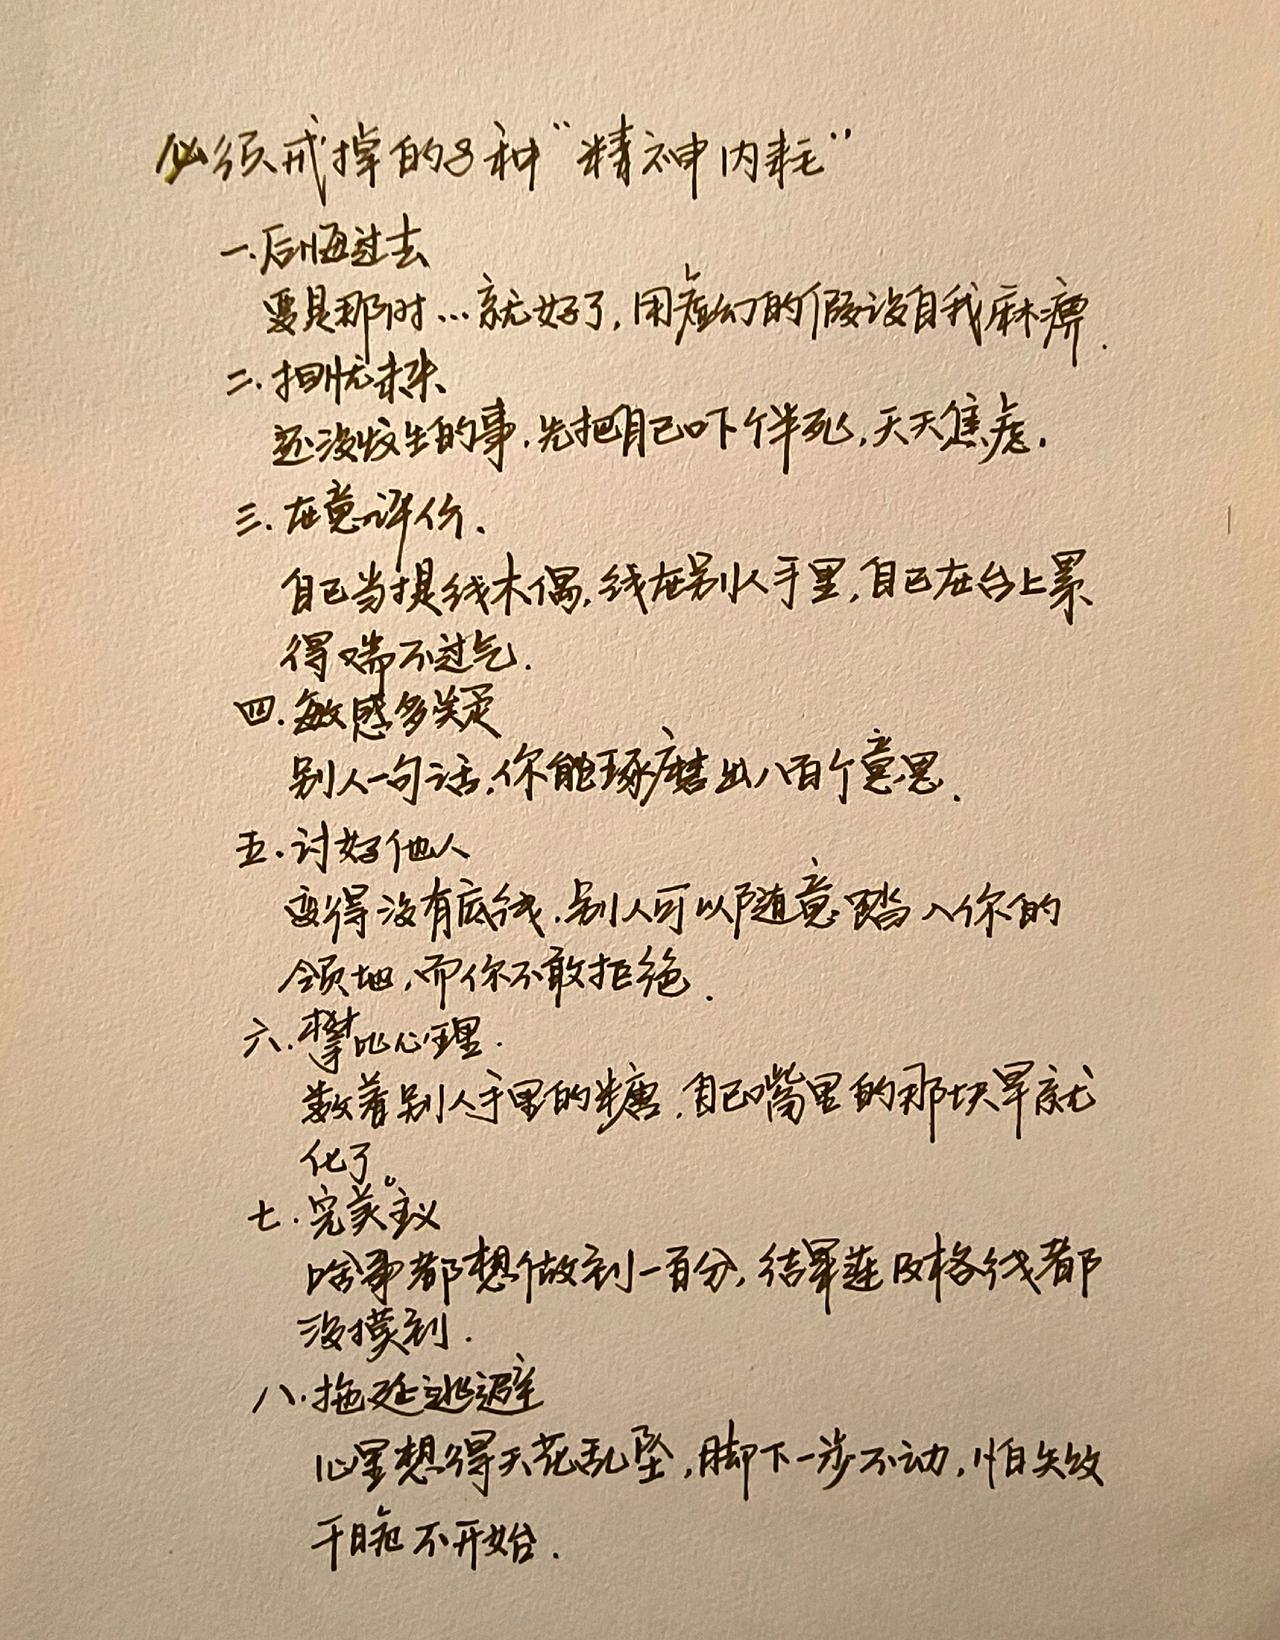 必须戒掉的8种“精神内耗”
一.后悔过去
要是那时…就好了,用虚幻的假设自我麻痹.
二.担忧未来
还没发生的事,先把自己吓个半死,天天焦虑.
三.在意评价.
自己当提线木偶,线在别人手里,自己在台上累
得喘不过气.
四.敏感多疑
别人一句话,你能琢磨出八百个意思.
五.讨好他人
变得没有底线,别人可以随意踏入你的
领地,而你不敢拒绝.
六.攀比心理.
数着别人手里的糖,自己嘴里的那块早就
化了。
七.完美主义
啥事都想做到一百分,结果连及格线都
没摸到.
八.拖延逃避
心里想得天花乱坠,脚下一步不动,怕失败
干脆不开始.